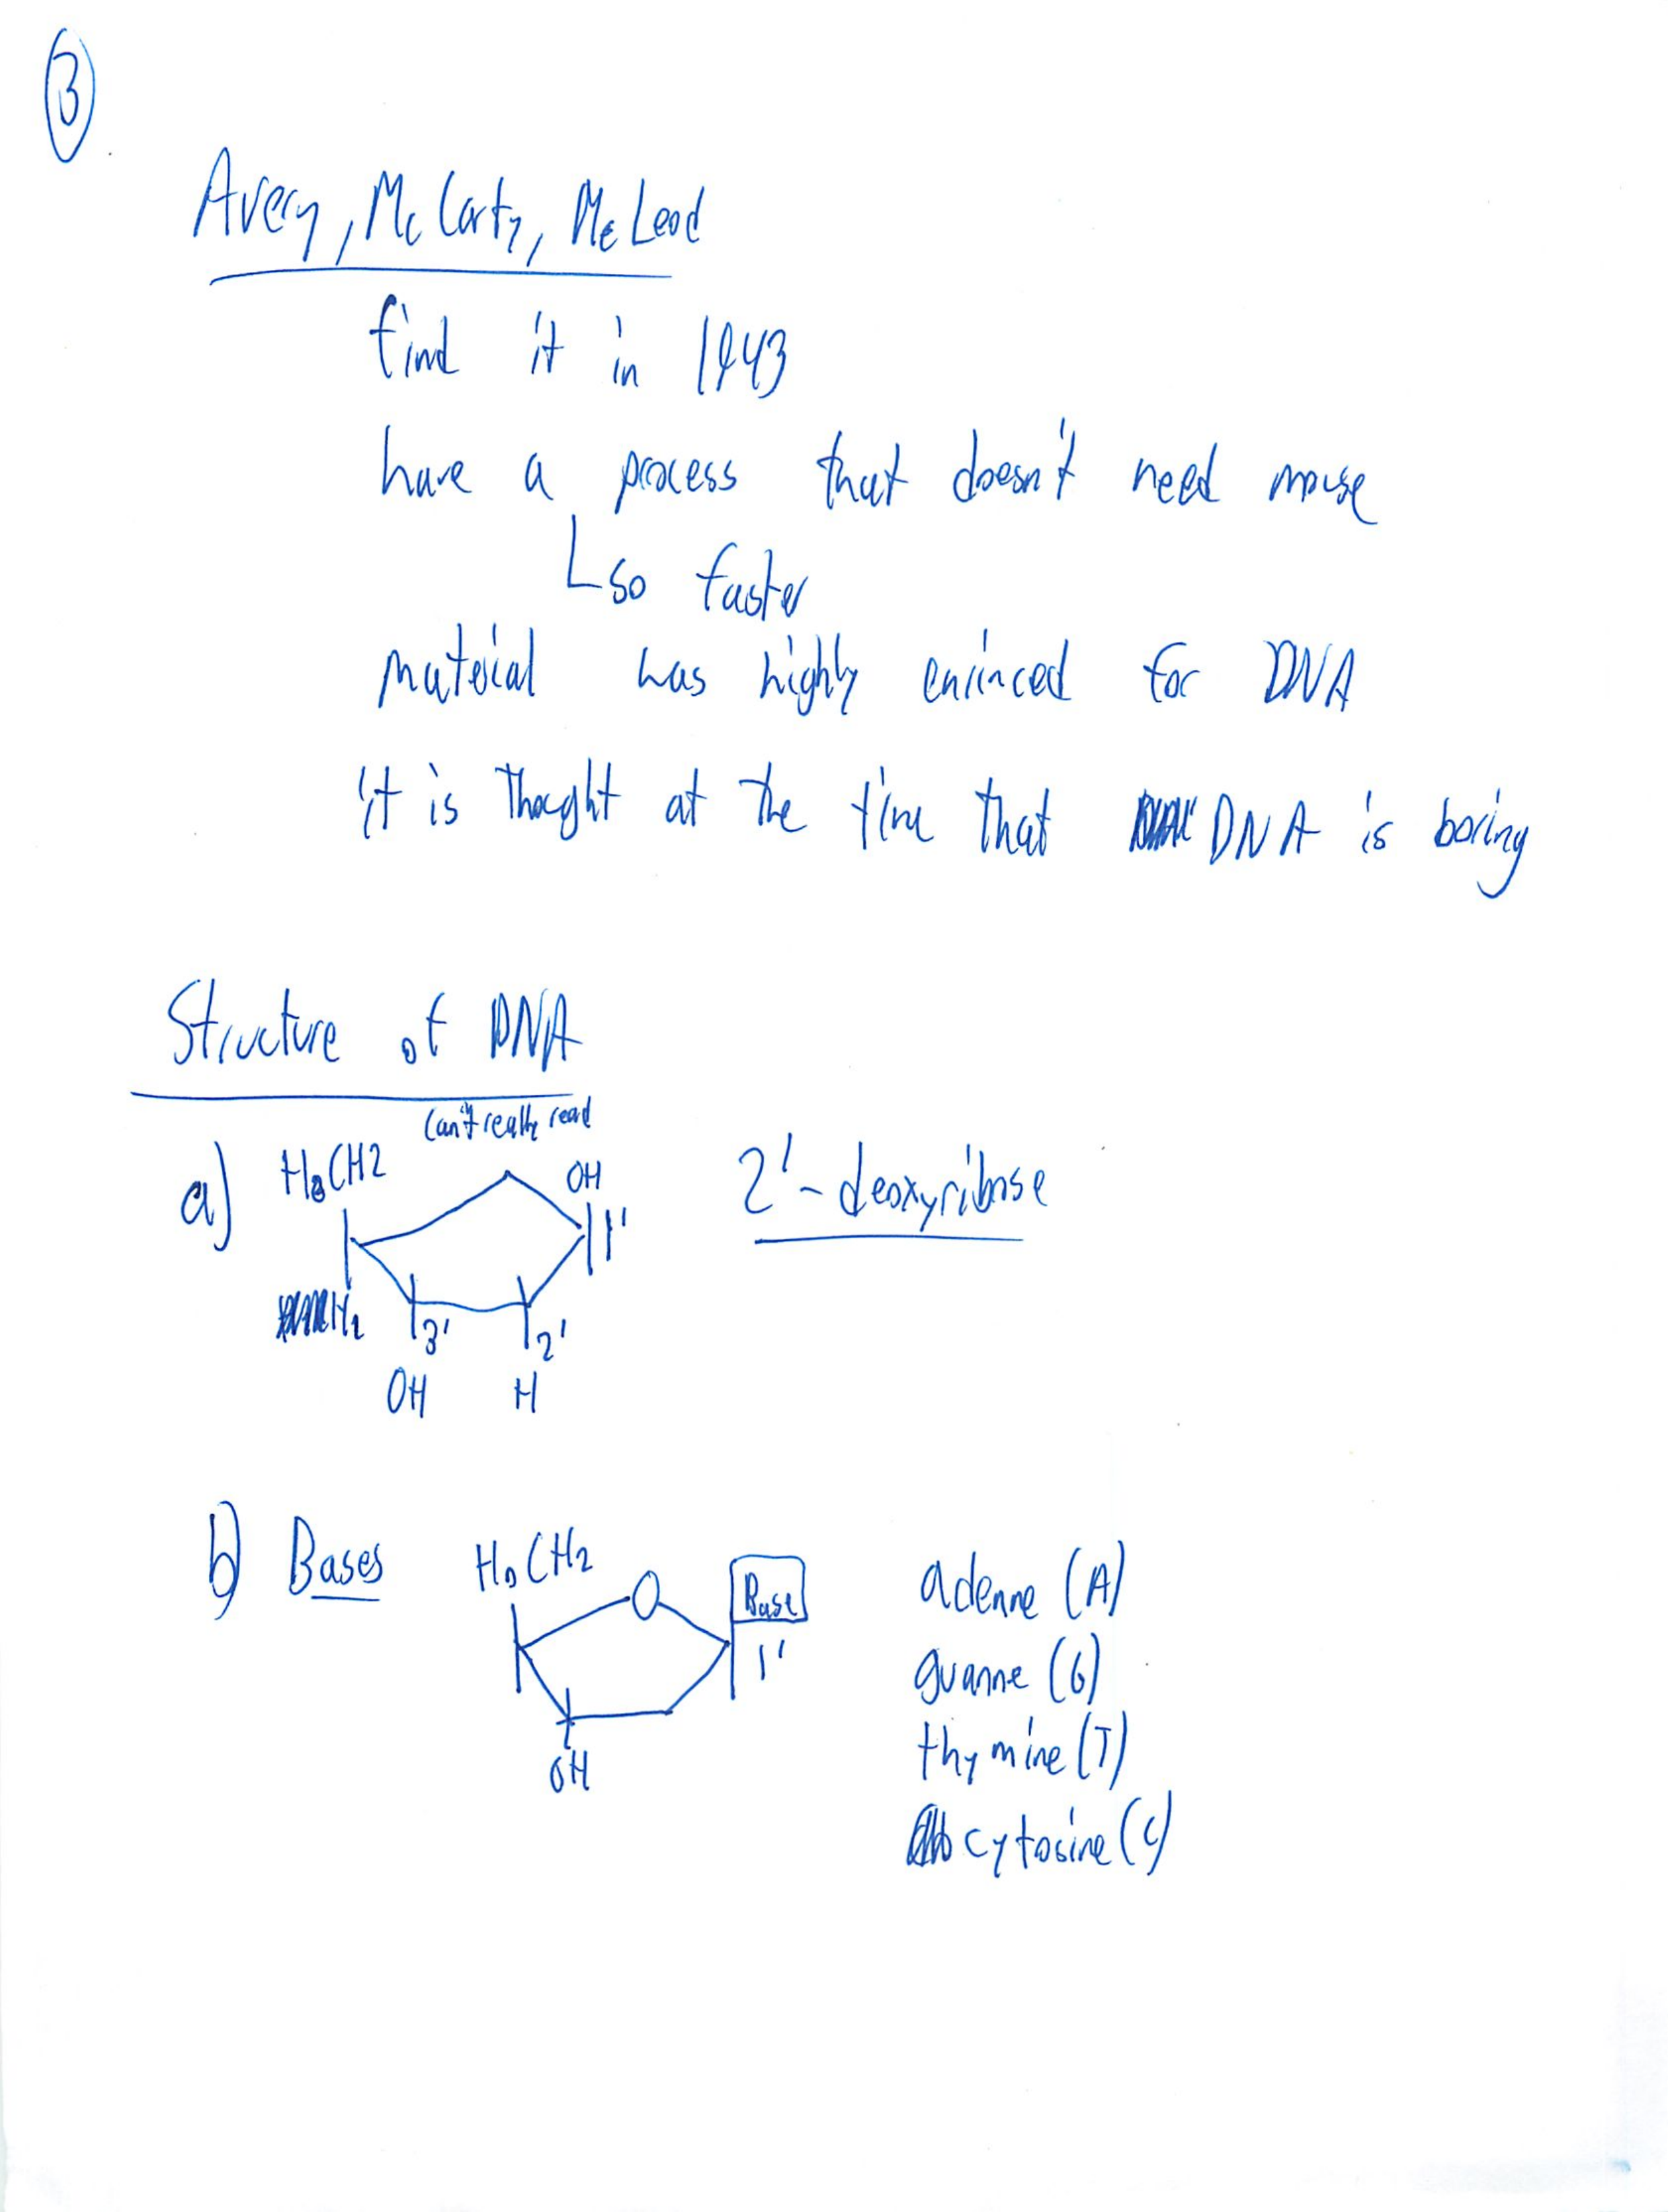 3
Avery, McCarty, McLeod
find it in 1943
have a process that doesn't need mouse
so faster
material was highly enrinced for DNA
it is thought at the time that DNA is boring
Structure of DNA
can't really read
a) HoCH2 OH 2'-deoxyribose
1'
3' 2'
OH H
b) Bases HoCH2 O Base adenne (A)
1' guanne (G)
OH thymine (T)
cytosine (C)